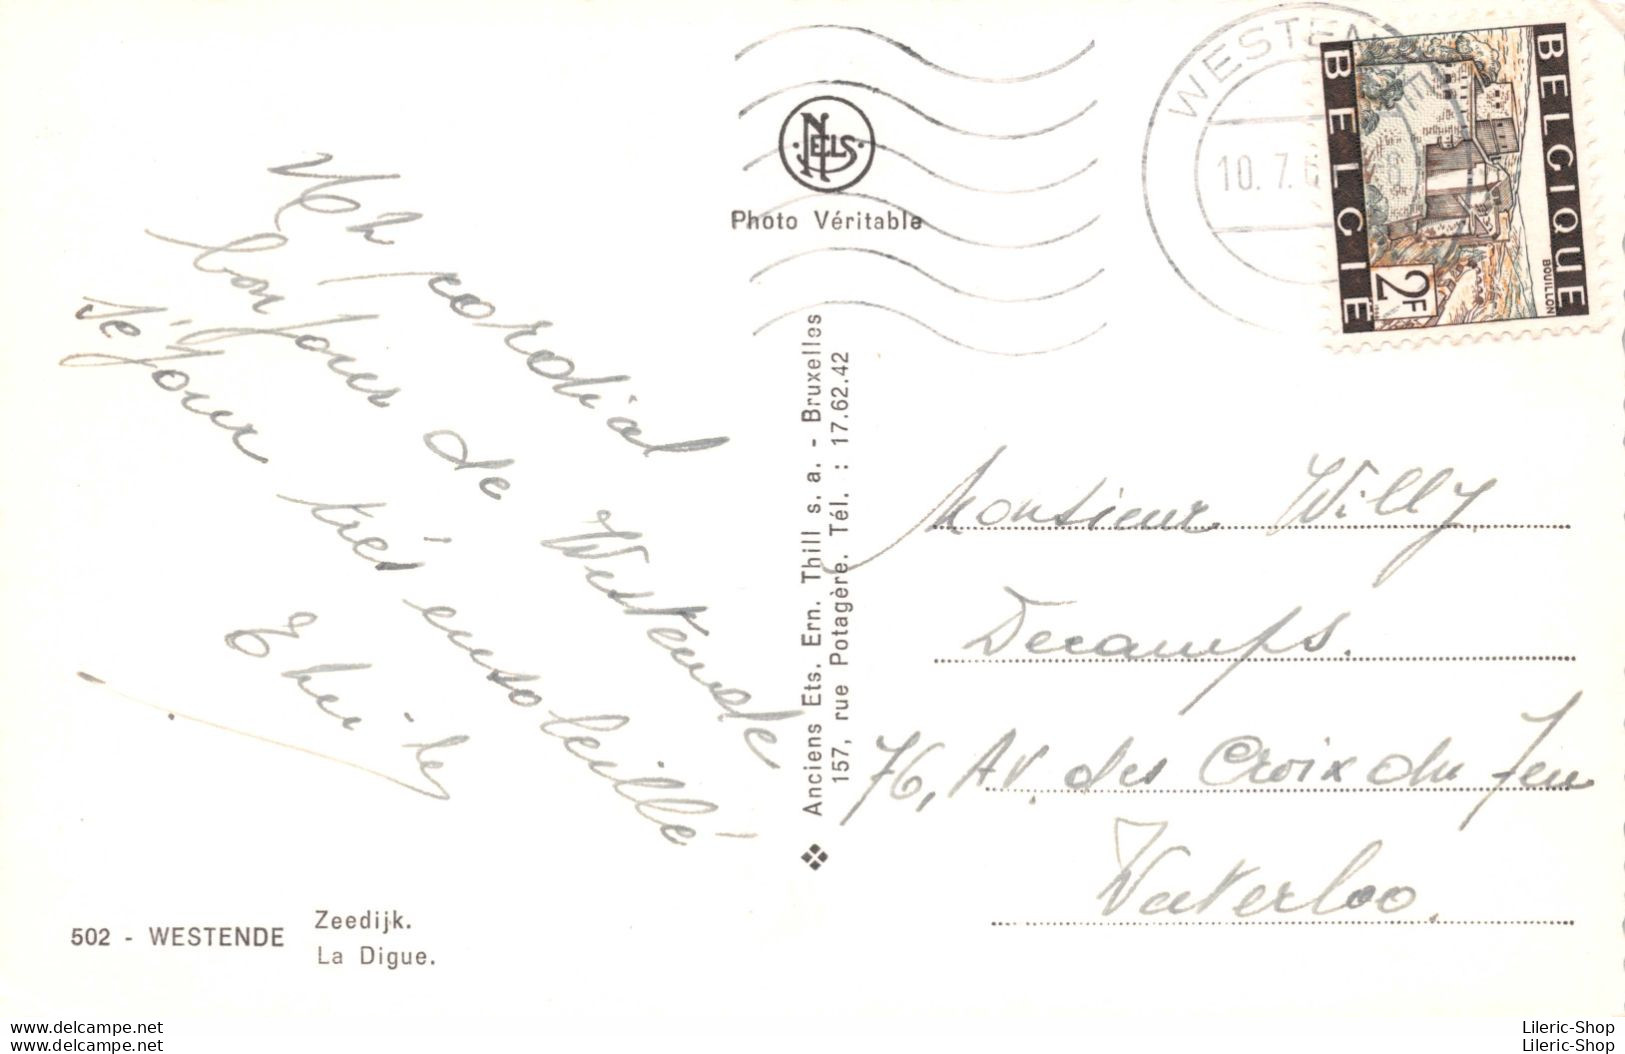 Un cordial
bonjour de Westende
séjour très ensoleillé
NELS
Photo Véritable
Anciens Ets. Ern. Thill s. a. - Bruxelles
157, rue Potagère. Tél. : 17.62.42
WESTEN
10. 7. 6
BELGIQUE
BELGIË
BOUILLON
2F
Monsieur Willy
Decamps.
76, Av. des Croix du Feu
Waterloo.
502 - WESTENDE
Zeedijk.
La Digue.
www.delcampe.net
www.delcampe.net
Lileric-Shop
Lileric-Shop